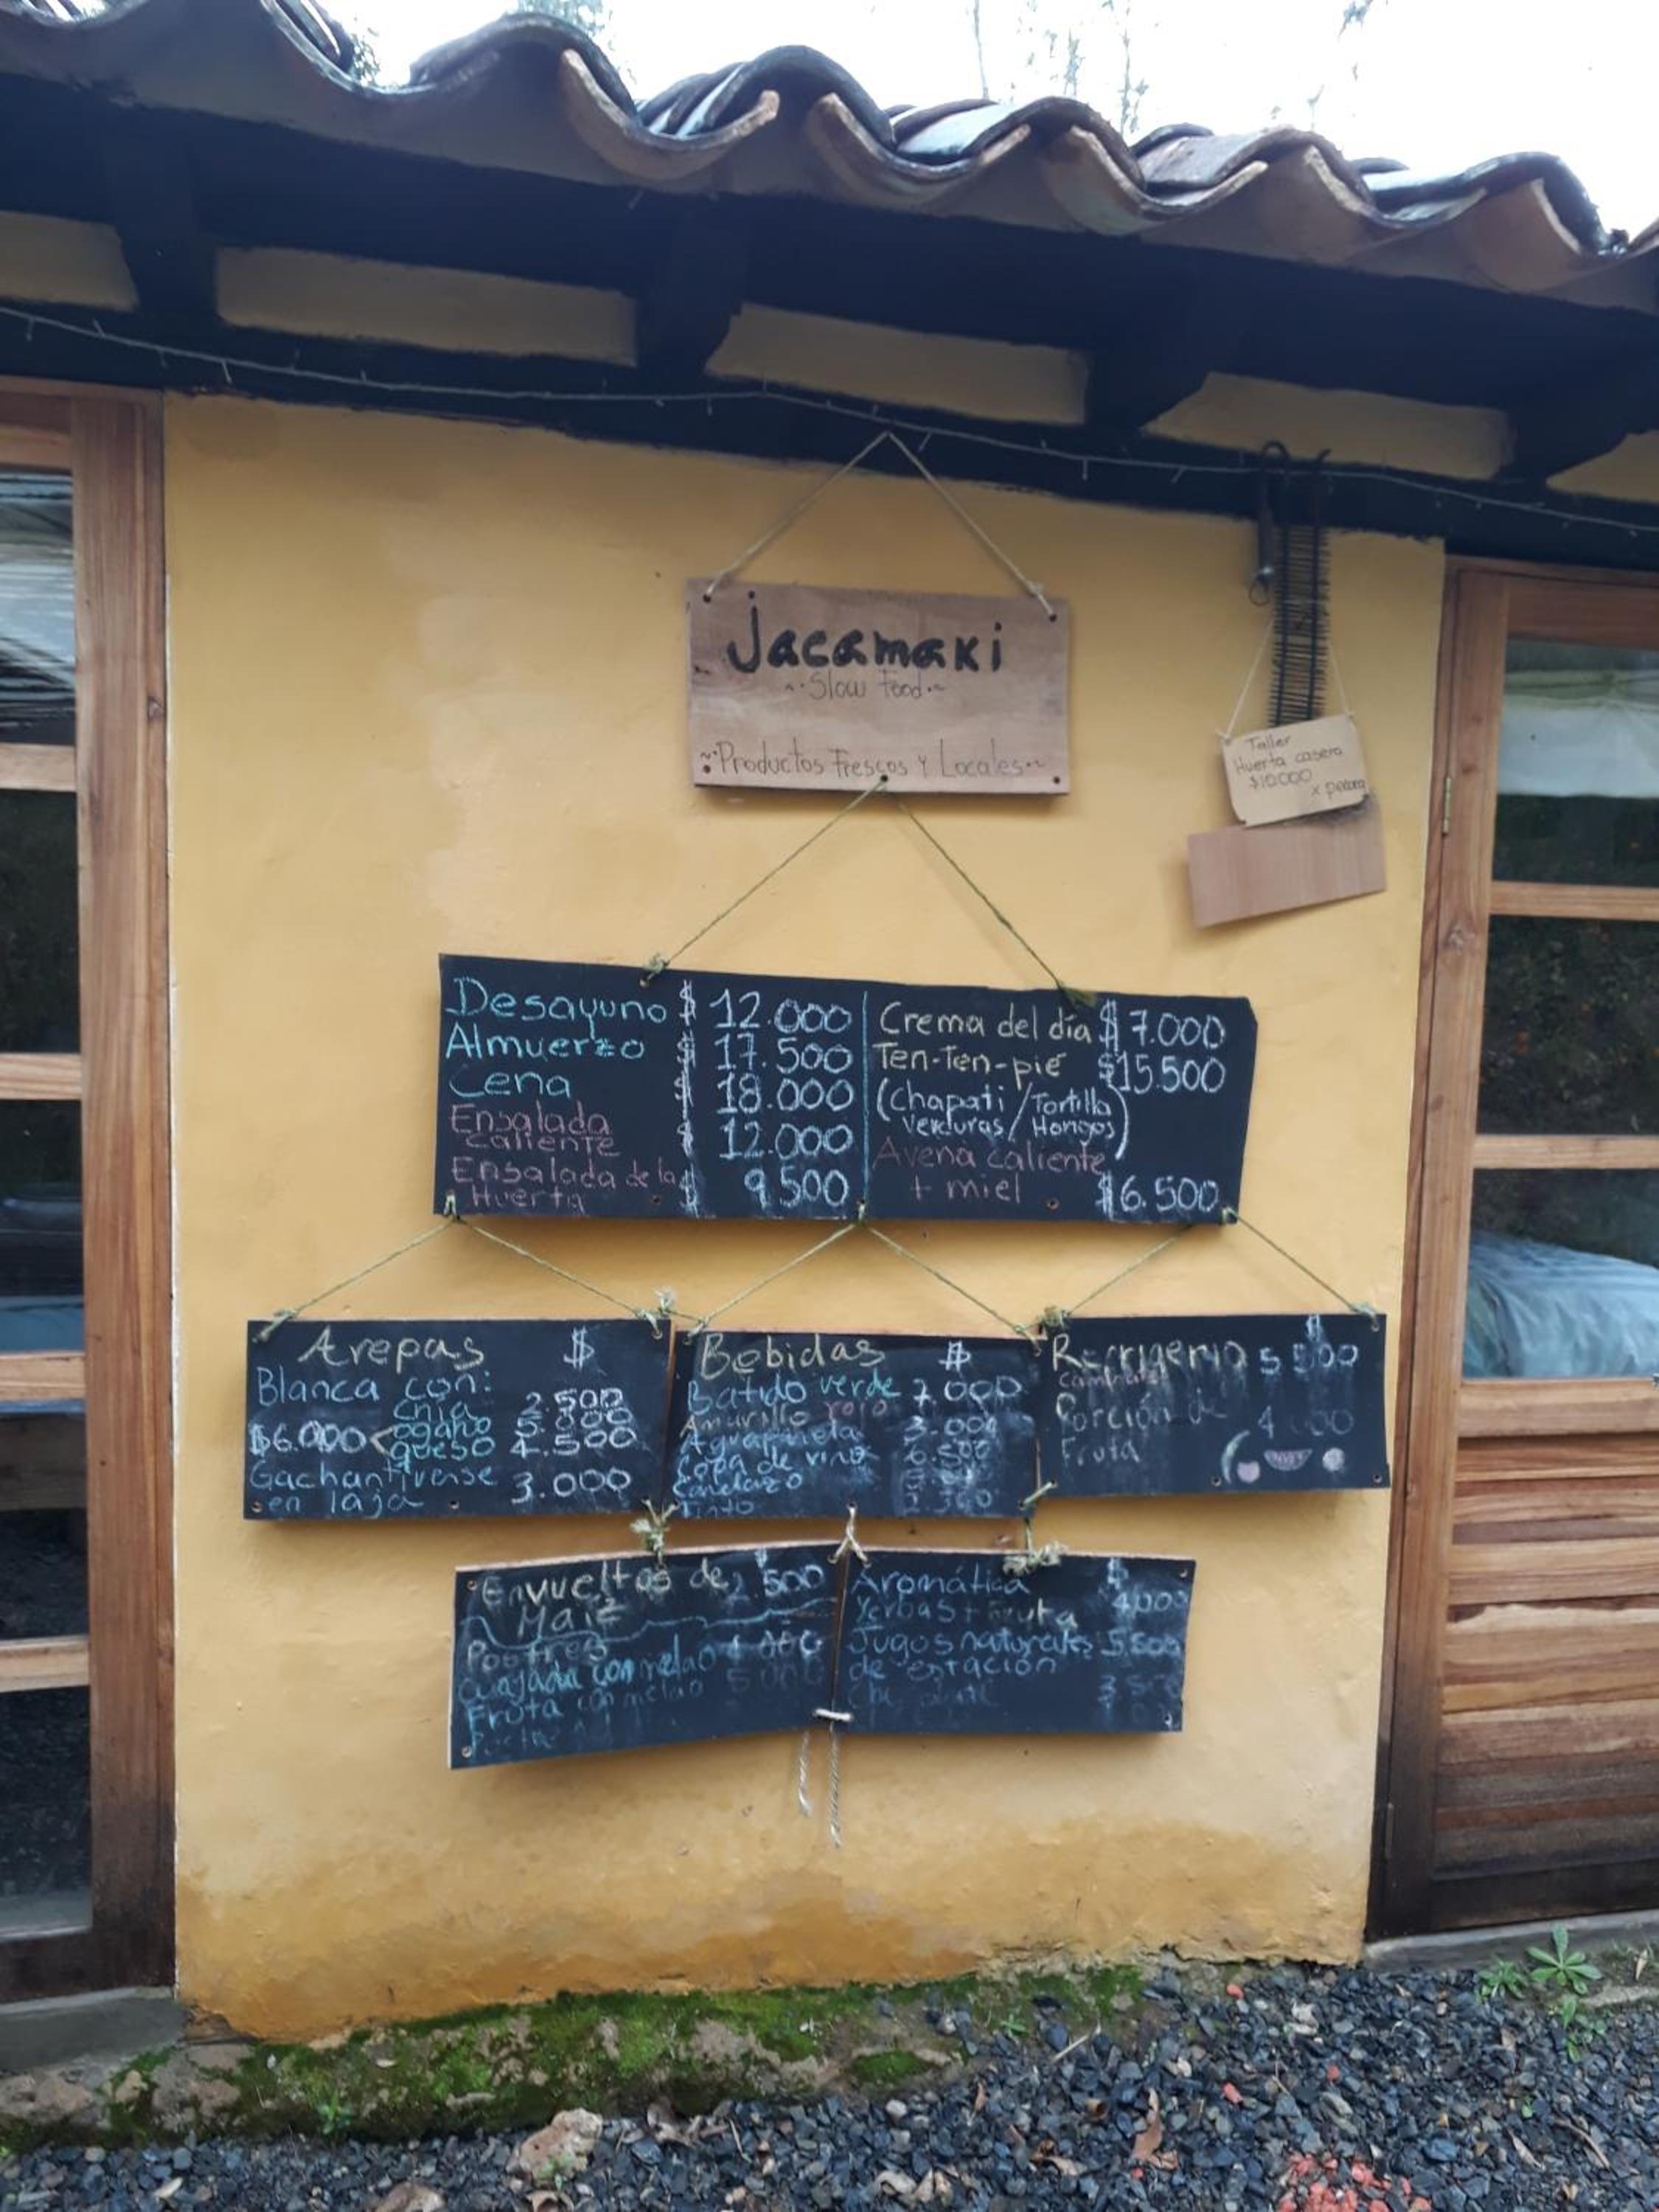 Jacamaki
Slow Food
Productos Frescos y Locales
Taller
Huerta casera
$10000
x persona
Desayuno $ 12.000
Almuerzo $ 17.500
Cena $ 18.000
Ensalada
caliente $ 12.000
Ensalada de la
Huerta $ 9.500
Crema del día $ 7.000
Ten-Ten-pie $15.500
(Chapati/Tortilla
Verduras/Hongos)
Avena caliente
+ miel $6.500
Arepas $
Blanca con:
chia 2.500
$6.000<
queso 4.500
Gachantivense
en laja 3.000
Bebidas $
Batido verde 7.000
Amarillo rojo
Aguapanela 3.000
Copa de vino 6.500
Canelazo
Tinto
Refrigerio $ 5 500
Porción de
Fruta 4 000
Envueltos de $ 2 500
Maíz
Postres
Cuajada con melao
Fruta con melao
Aromática $
Yerbas + Fruta 4000
Jugos naturales 5.500
de estación